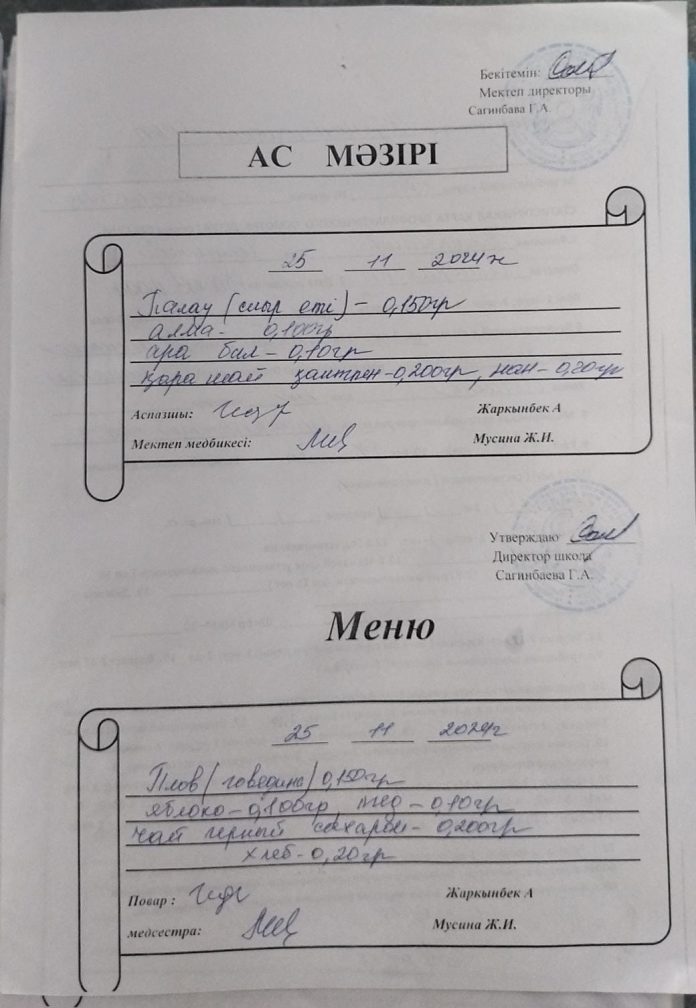 Бекітемін:
Мектеп директоры
Сагинбава Г.А.
АС МӘЗІРІ
25 11 2024 ж
Палау (сиыр еті) - 0,150гр
алма - 0,100гр
ара бал - 0,10гр
қара шай қантпен - 0,200гр, нан - 0,20гр
Аспазшы: Жаркынбек А
Мектеп медбикесі: Мусина Ж.И.
Утверждаю
Директор школа
Сагинбаева Г.А.
Меню
25 11 2024г
Плов (говедина) 0,150гр
яблоко - 0,100гр, мед - 0,10гр
чай черный сахаром - 0,200гр
хлеб - 0,20гр
Повар : Жаркынбек А
медсестра: Мусина Ж.И.